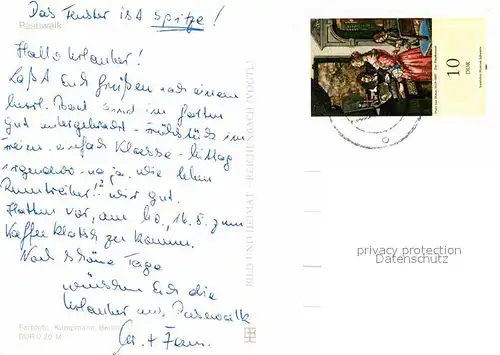 Das Fenster ist spitze!
Pasewalk
Hallo Urlauber!
Laßt Euch grüßen nach einem
Bad sind im Garten
gut untergebracht - Frühstück im
Freien. einfach Klasse - Mittag
irgendwo - na ja. wie leben
gut.
Hatten vor, am 16.8. zum
Kaffeeklatsch zu kommen.
Noch schöne Tage
wünschen Euch die
Urlauber aus Pasewalk
+ Fam.
Farbfoto: Kampmann, Berlin
DDR 0,20 M
BILD UND HEIMAT · REICHENBACH (VOGTL)
10
DDR
privacy protection
Datenschutz